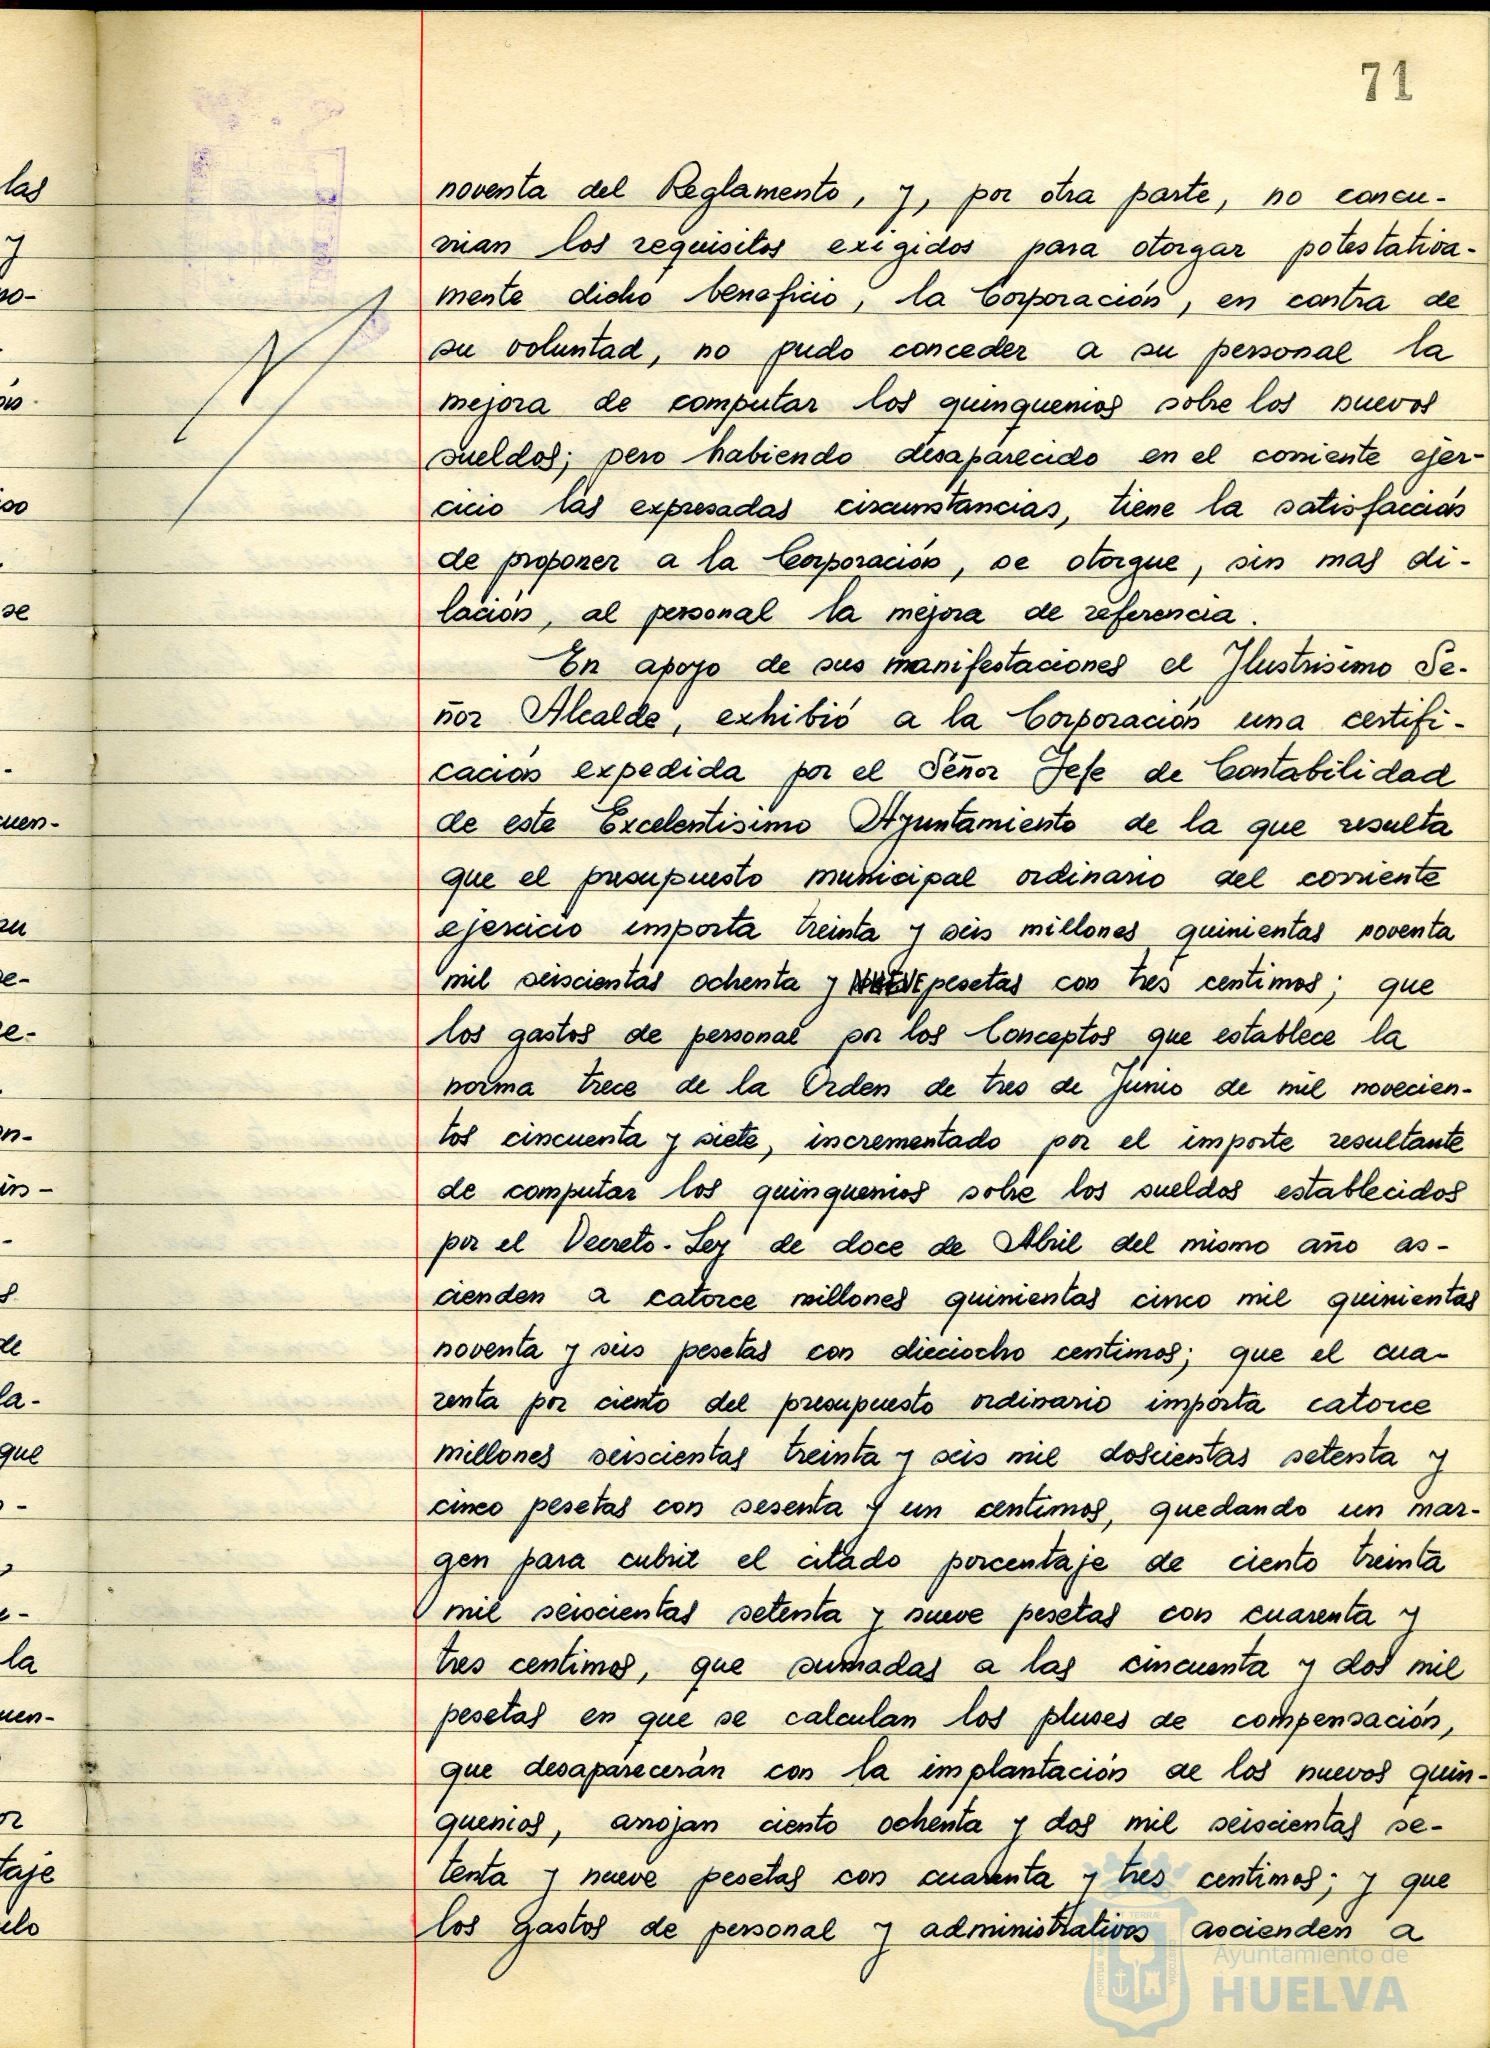 71
noventa del Reglamento, y, por otra parte, no concu-
rrian los requisitos exigidos para otorgar potestativa-
mente dicho beneficio, la Corporación, en contra de
su voluntad, no pudo conceder a su personal la
mejora de computar los quinquenios sobre los nuevos
sueldos; pero habiendo desaparecido en el corriente ejer-
cicio las expresadas circunstancias, tiene la satisfacción
de proponer a la Corporación, se otorgue, sin mas di-
lación, al personal la mejora de referencia.
En apoyo de sus manifestaciones el Ilustrisimo Se-
ñor Alcalde, exhibió a la Corporación una certifi-
cación expedida por el Señor Jefe de Contabilidad
de este Excelentisimo Ayuntamiento de la que resulta
que el presupuesto municipal ordinario del corriente
ejercicio importa treinta y seis millones quinientas noventa
mil seiscientas ochenta y NUEVE pesetas con tres centimos; que
los gastos de personal por los Conceptos que establece la
norma trece de la Orden de tres de Junio de mil novecien-
tos cincuenta y siete, incrementado por el importe resultante
de computar los quinquenios sobre los sueldos establecidos
por el Decreto-Ley de doce de Abril del mismo año as-
cienden a catorce millones quinientas cinco mil quinientas
noventa y seis pesetas con dieciocho centimos; que el cua-
renta por ciento del presupuesto ordinario importa catorce
millones seiscientas treinta y seis mil doscientas setenta y
cinco pesetas con sesenta y un centimos, quedando un mar-
gen para cubrir el citado porcentaje de ciento treinta
mil seiscientas setenta y nueve pesetas con cuarenta y
tres centimos, que sumadas a las cincuenta y dos mil
pesetas en que se calculan los pluses de compensación,
que desaparecerán con la implantación de los nuevos quin-
quenios, arrojan ciento ochenta y dos mil seiscientas se-
tenta y nueve pesetas con cuarenta y tres centimos; y que
los gastos de personal y administrativos ascienden a
Ayuntamiento de
HUELVA